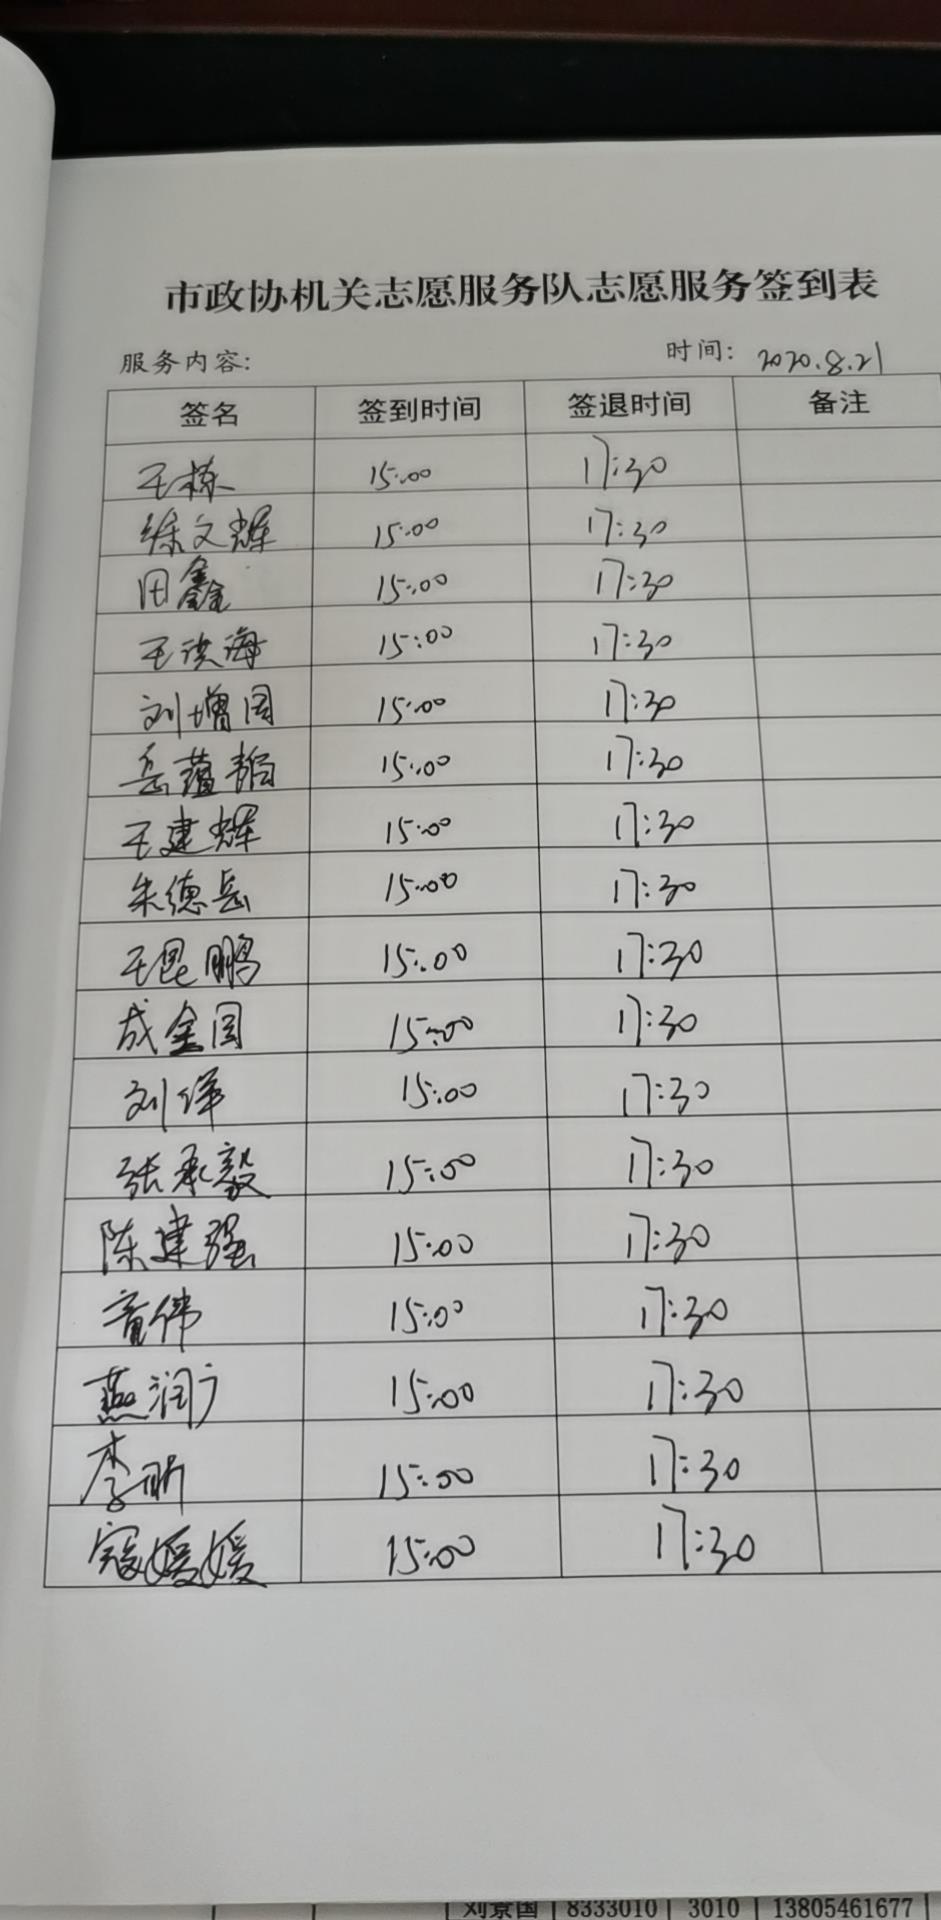 市政协机关志愿服务队志愿服务签到表
服务内容: 时间: 2020.8.21
签名 签到时间 签退时间 备注
王栋 15:00 17:30
徐文辉 15:00 17:30
田鑫 15:00 17:30
王洪海 15:00 17:30
刘增国 15:00 17:30
岳蕴韬 15:00 17:30
王建辉 15:00 17:30
朱德岳 15:00 17:30
王昆鹏 15:00 17:30
成金国 15:00 17:30
刘洋 15:00 17:30
张承毅 15:00 17:30
陈建强 15:00 17:30
童伟 15:00 17:30
燕润广 15:00 17:30
李昕 15:00 17:30
寇媛媛 15:00 17:30
刘景国 8333010 3010 13805461677